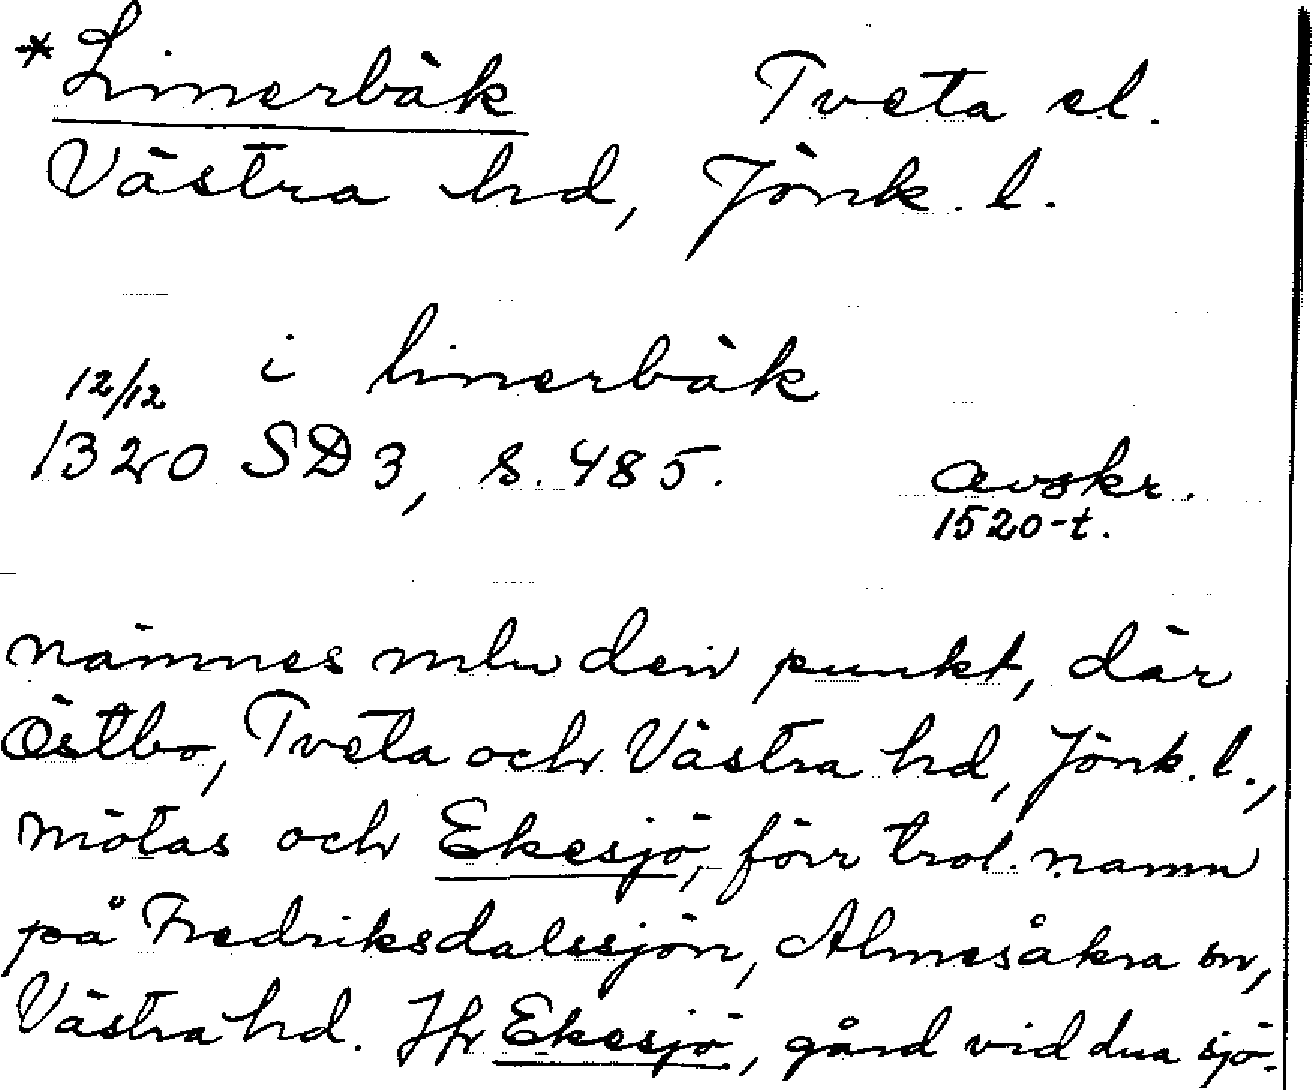 *Linerbäk Tveta el.
Västra hd, Jönk. l.
i linerbäk
12/12
1320 SD 3, s. 485. avskr.
1520-t.
nämnes mln den punkt, där
Östbo, Tveta och Västra hd, Jönk. l.,
mötas och Ekesjö, förr trol. namn
på Fredriksdalssjön, Almesåkra sn,
Västra hd. Jfr Ekesjö, gård vid dna sjö.